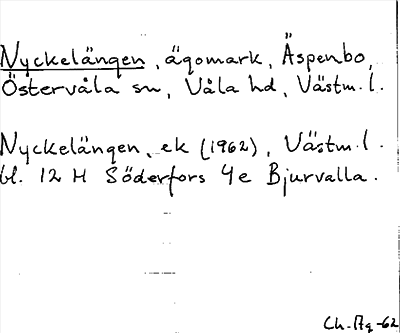 Nyckelängen, ägomark, Äspenbo,
Östervåla sn, Våla hd, Västm. l.
Nyckelängen, ek (1962), Västm. l.
bl. 12 H Söderfors 4e Bjurvalla.
Ch. Aq -62